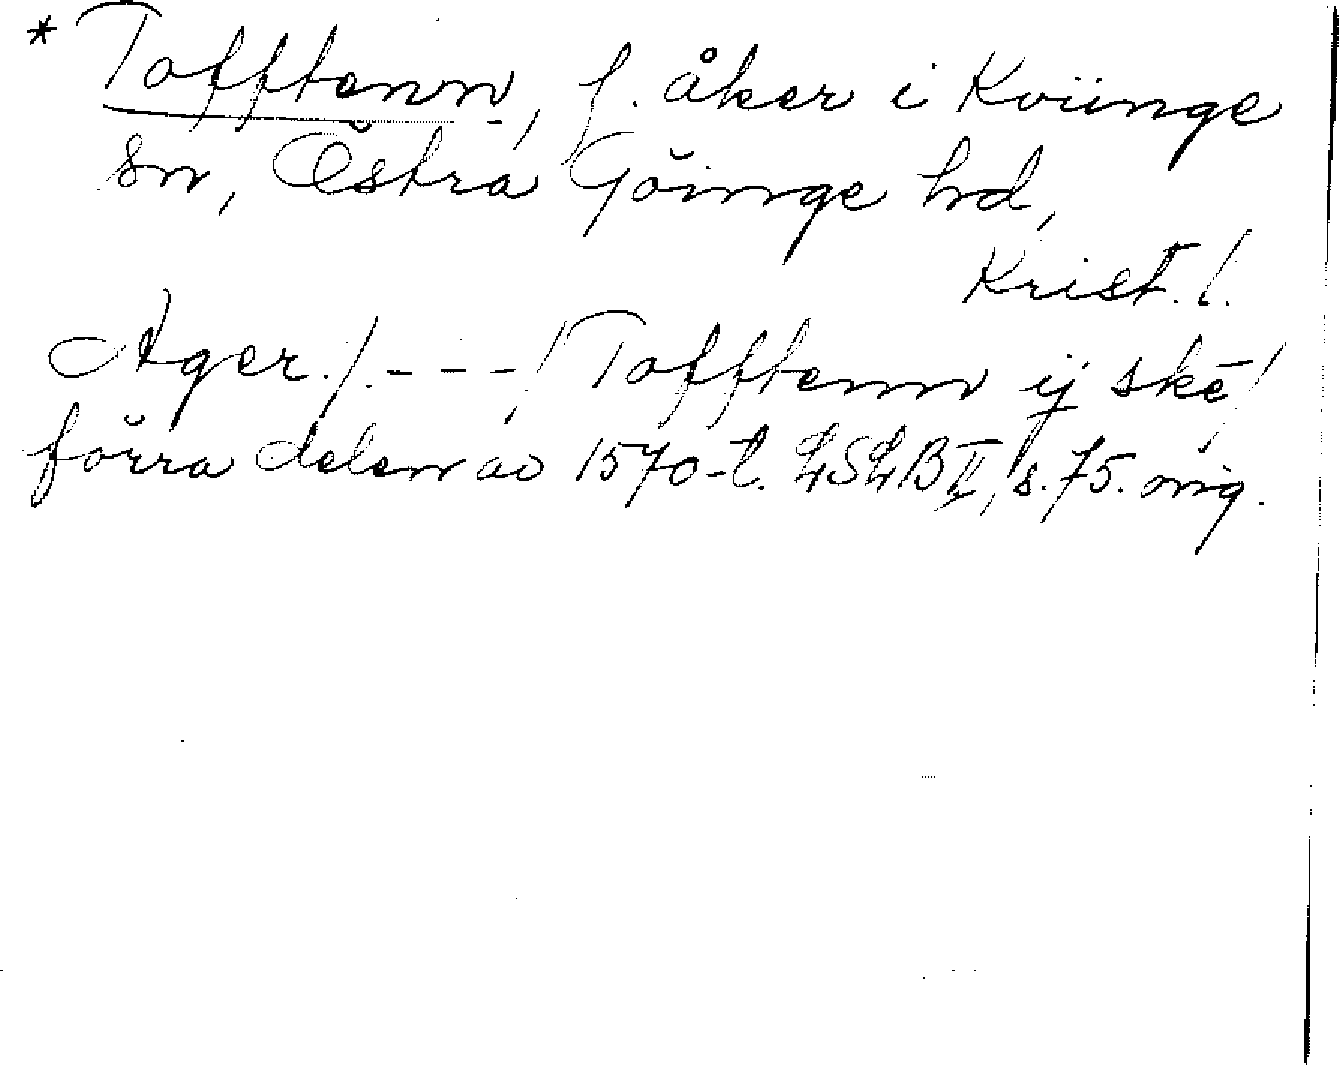 * Tofftenn, f. åker i Kviinge
sn, Östra Göinge hd,
Krist. l.
Ager /.---/ Tofftenn ij skē/
förra delen av 1570-t. LSLB II, s. 75. orig.